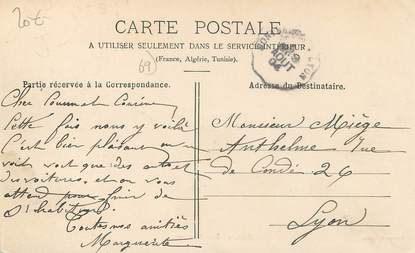 20 €
CARTE POSTALE
A UTILISER SEULEMENT DANS LE SERVICE INTERIEUR
(France, Algérie, Tunisie).
69
LYON
AOUT
04
Partie réservée à la Correspondance.
Adresse du Destinataire.
Cher
Cette fois nous y voilà
C'est bien plaisant on
voit que des autos et
des voitures, et on vous
attend pour finir de
s'habituer.
Toutes nos amitiés
Marguerite
Monsieur Miège
Anthelme rue
de Condé 26
Lyon